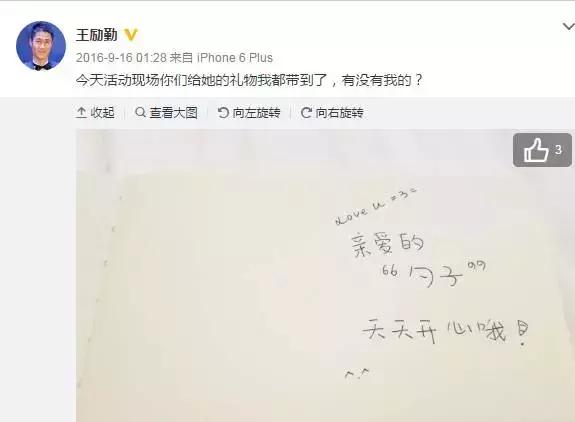 王励勤
2016-9-16 01:28 来自 iPhone 6 Plus
今天活动现场你们给她的礼物我都带到了，有没有我的？
收起 查看大图 向左旋转 向右旋转
3
Love u =3=
亲爱的
“勺子”
天天开心哦！
^.^